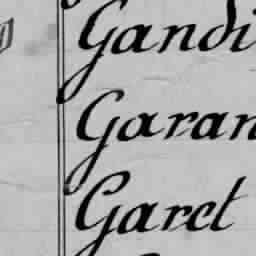 Gandi
Garan
Garet